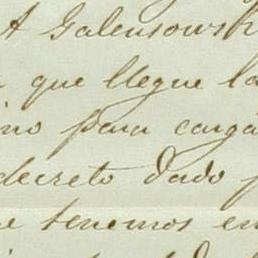 A Galensowsk
que llegue la
ino para carga
decreto dado p
e tenemos en